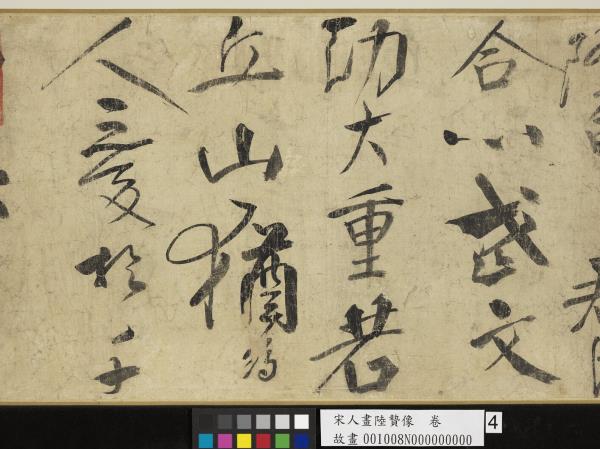 合以武文
功大重若
丘山猶
人愛於千
宋人畫陸贄像 卷
故畫 001008N000000000
4